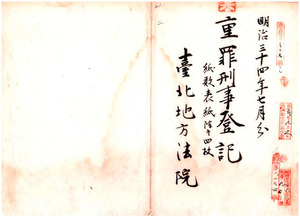 明治三十四年七月分
重罪刑事登記
紙數表紙共十四枚
臺北地方法院